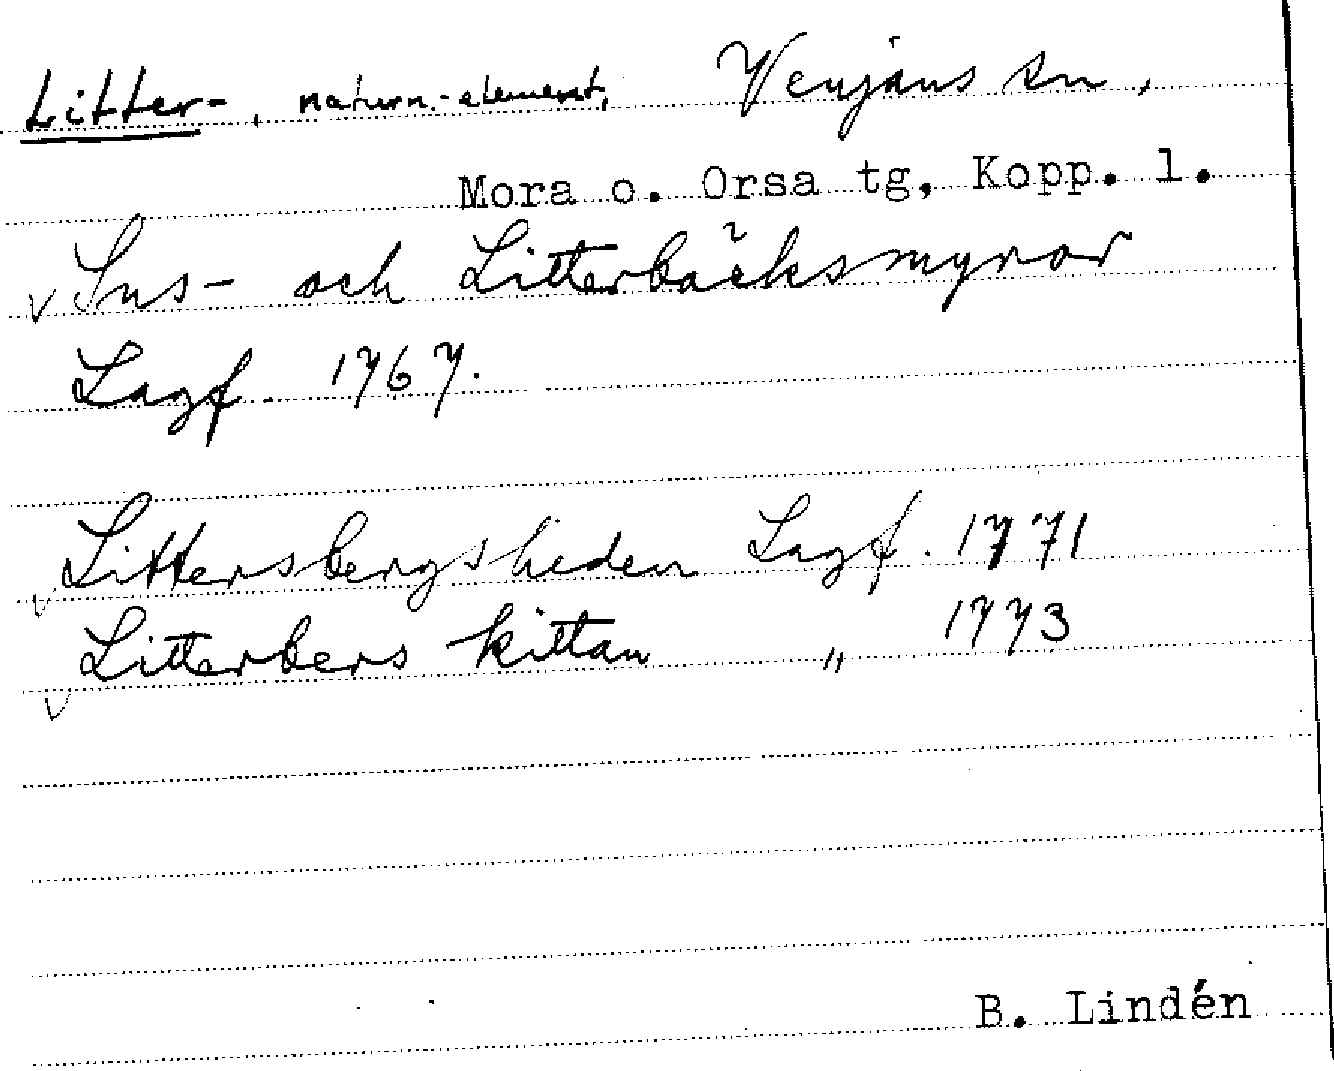 Litter-, naturn.-element, Venjans sn,
Mora o. Orsa tg, Kopp. l.
V Sns- och Litterbäcksmyror
Lagf. 1767.
V Littersbergsheden Lagf. 1771
V Litterbers kittan " 1773
B. Lindén